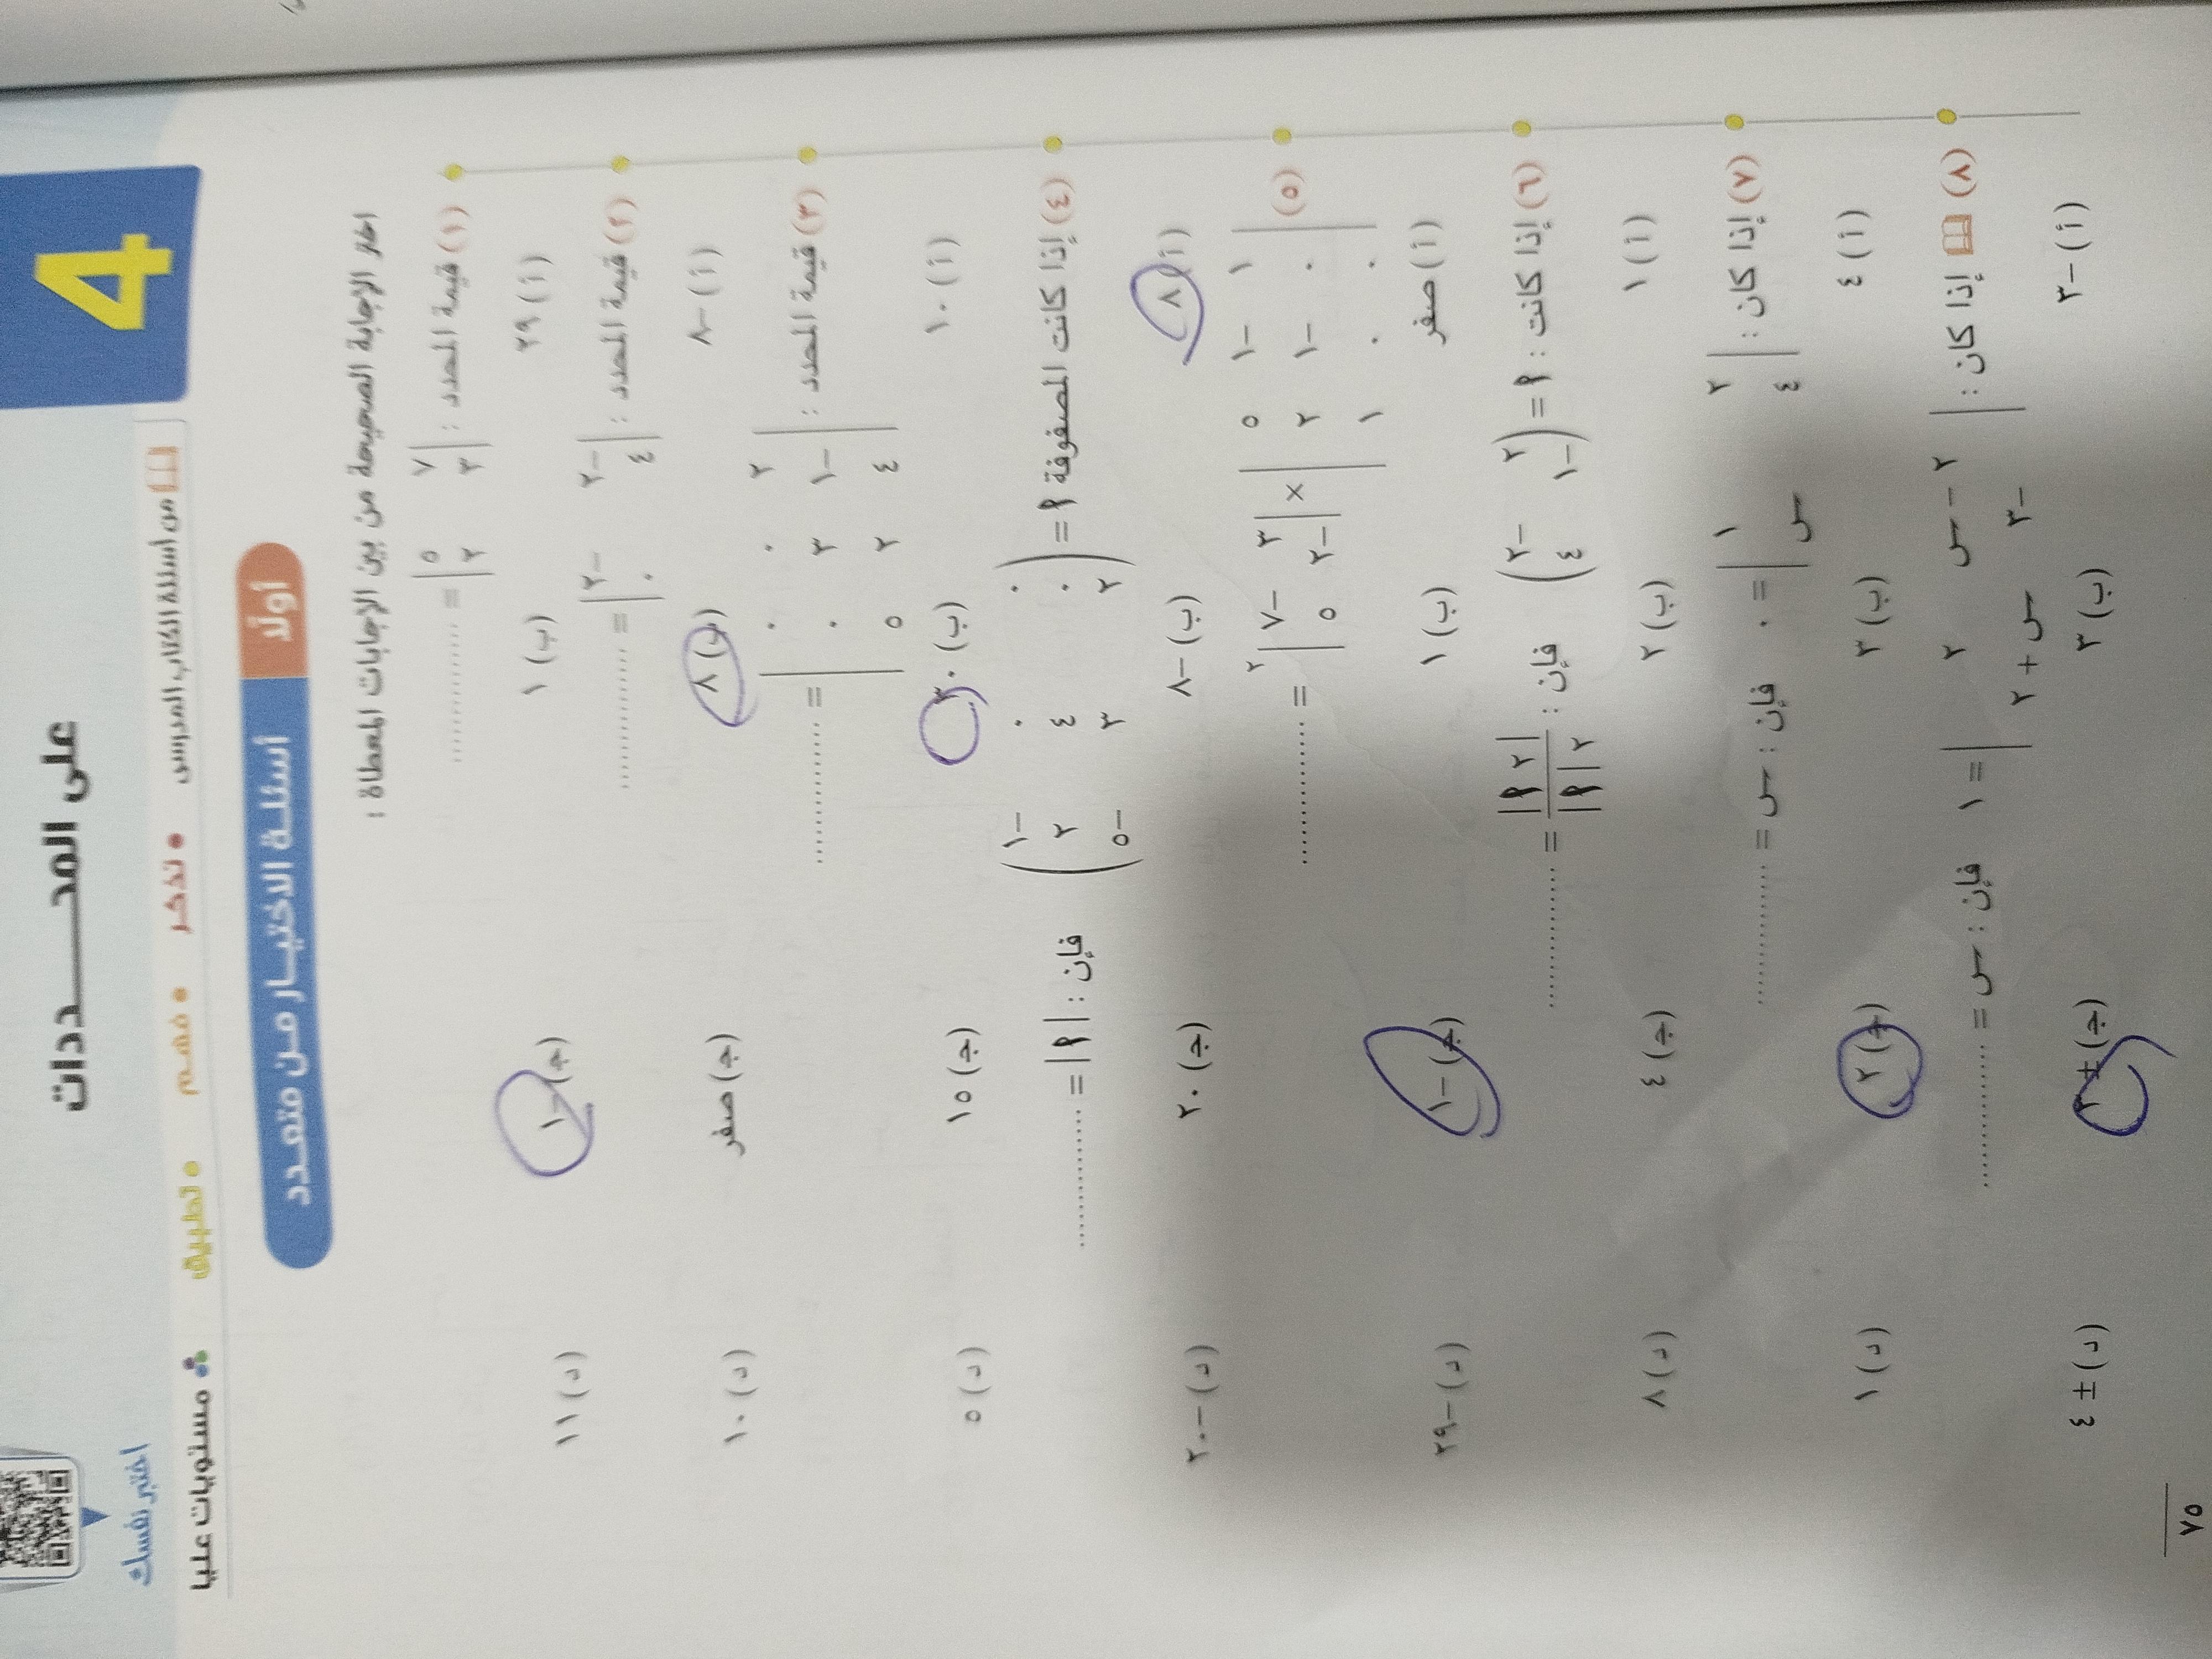 4
على المحـــددات
اختبر نفسك
من أسئلة الكتاب المدرسى • تذكر • فهم • تطبيق مستويات عليا
أولًا أسئلة الاختيار من متعدد
اختر الإجابة الصحيحة من بين الإجابات المعطاة :
(١) قيمة المحدد : | ٧ ٥ |
| ٣ ٢ | = ..............
(أ) ٢٩ (ب) ١ (ج) -١ (د) ١١
(٢) قيمة المحدد : | -٢ -٢ |
| ٤ ٠ | = ..............
(أ) -٨ (ب) ٨ (ج) صفر (د) ١٠
(٣) قيمة المحدد : | ٢ ٠ ٠ |
| -١ ٣ ٠ | = ..............
| ٤ ٢ ٥ |
(أ) ١٠ (ب) ٣٠ (ج) ١٥ (د) ٥
(٤) إذا كانت المصفوفة ا = ( ٠ ٠ -١ )
( ٠ ٤ ٢ ) فإن : | ا | = ..............
( ٢ ٣ -٥ )
(أ) ٨ (ب) -٨ (ج) ٢٠ (د) -٢٠
(٥) | ١ -١ ٥ |
| ٠ -١ ٢ | × | ٣ -٧ |٢ = ..............
| ٠ ٠ ١ | | -٢ ٥ |
(أ) صفر (ب) ١ (ج) -١ (د) -٢٩
(٦) إذا كانت : ا = ( ٢ -٢ )
( -١ ٤ ) فإن : | ٢ ا | / ٢ | ا | = ..............
(أ) ١ (ب) ٢ (ج) ٤ (د) ٨
(٧) إذا كان : | ٢ ١ |
| ٤ س | = ٠ فإن : س = ..............
(أ) ٤ (ب) ٣ (ج) ٢ (د) ١
(٨) إذا كان : | س - ٢ ٢ |
| -٣ س + ٢ | = ١ فإن : س = ..............
(أ) -٣ (ب) ٣ (ج) ± ٣ (د) ± ٤
٧٥